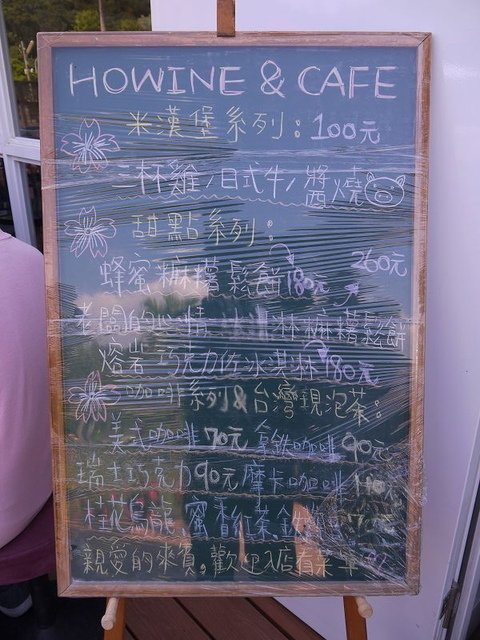 HOWINE & CAFE
米漢堡系列：100元
三杯雞/日式牛/醬燒
甜點系列：
蜂蜜麻糬鬆餅180元 260元
老闆的心情 淋麻糬鬆餅
熔岩巧克力佐冰淇淋180元
咖啡系列&台灣現泡茶：
美式咖啡70元 拿鐵咖啡90元
瑞士巧克力90元 摩卡咖啡110元
桂花烏龍、蜜香紅茶、
親愛的來賓，歡迎入店有菜單